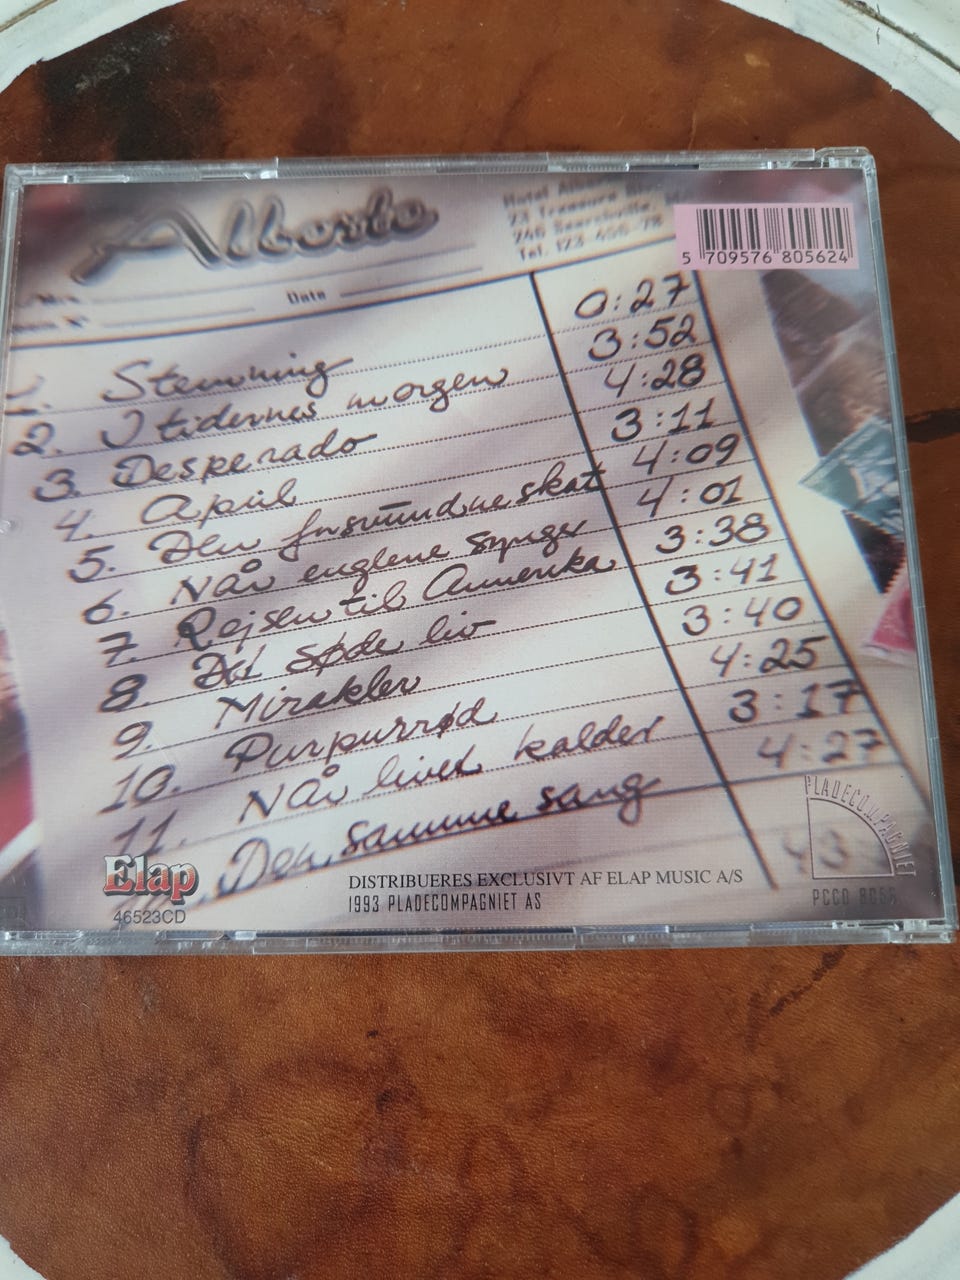 Alberte
Hotel
23 Treasure
246 Searchville,
Tel. 123-456-78
5 709576 805624
Date
1. Stemning 0:27
2. I tidernes morgen 3:52
3. Desperado 4:28
4. April 3:11
5. Den forsvundne skat 4:09
6. Når englene synger 4:01
7. Rejsen til Amerika 3:38
8. Det søde liv 3:41
9. Mirakler 3:40
10. Purpurrød 4:25
11. Når livet kalder 3:17
Den samme sang 4:27
PLADECOMPAGNIET
Elap
46523CD
DISTRIBUERES EXCLUSIVT AF ELAP MUSIC A/S
1993 PLADECOMPAGNIET AS
PCCD